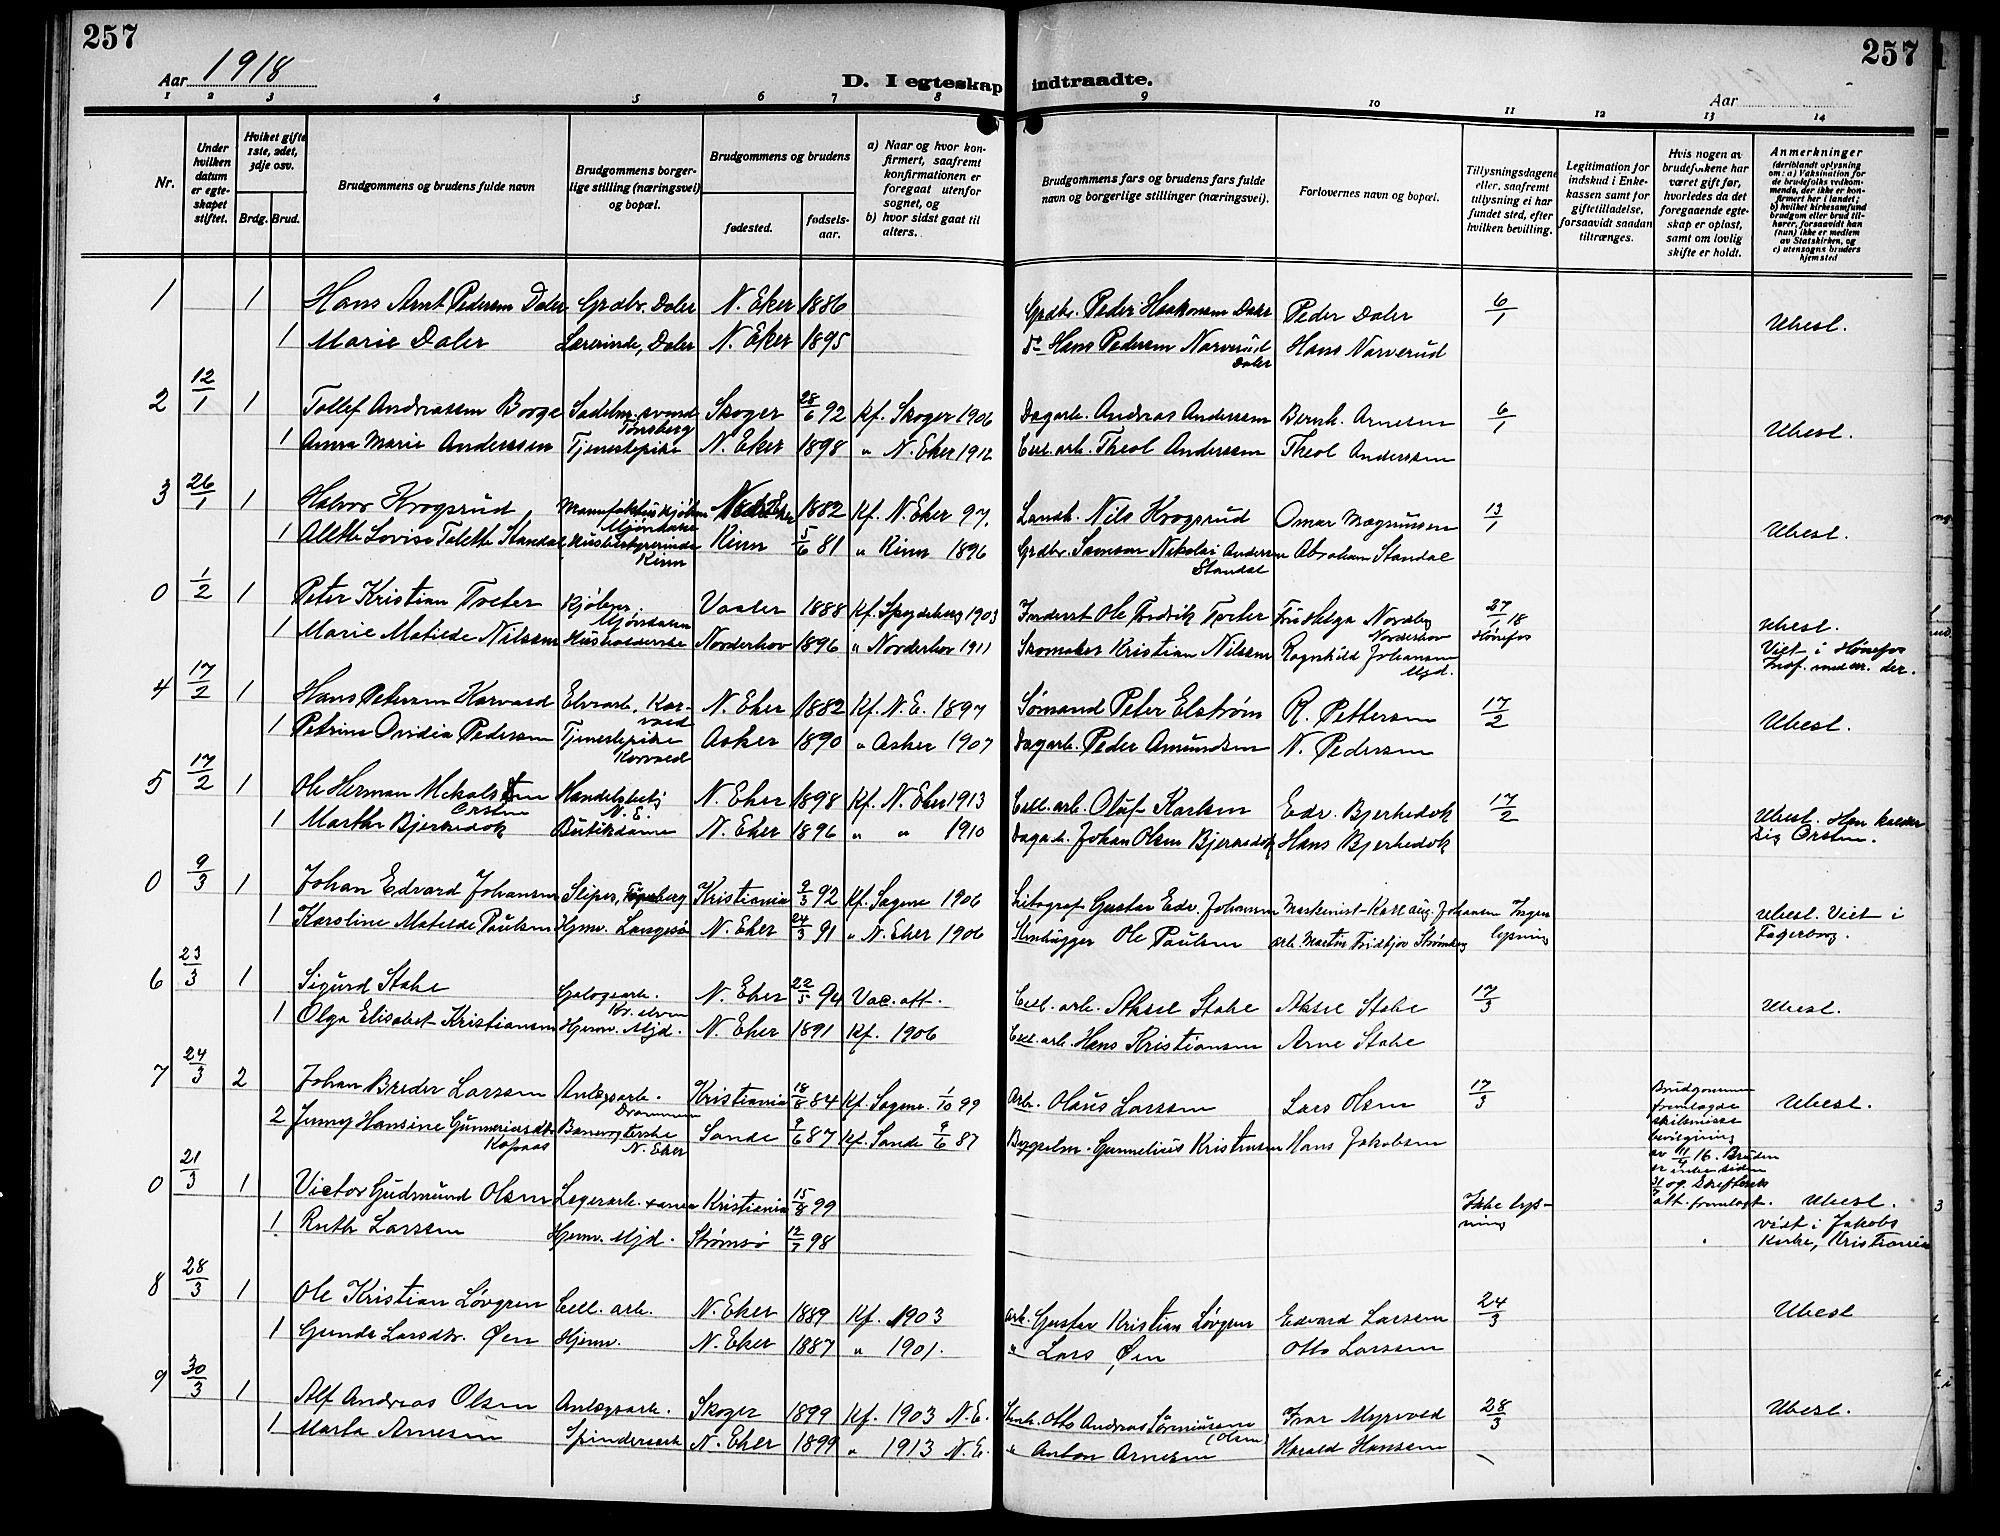 257
257
Aar 1918
D. I egteskap indtraadte.
Aar
1 2 3 4 5 6 7 8 9 10 11 12 13 14
Nr.
Under hvilken datum er egteskapet stiftet.
Hvilket gifte 1ste, 2det, 3dje osv.
Brdg. Brud.
Brudgommens og brudens fulde navn
Brudgommens borgerlige stilling (næringsvei) og bopæl.
Brudgommens og brudens
fødested.
fødselsaar.
a) Naar og hvor konfirmert, saafremt konfirmationen er foregaat utenfor sognet, og
b) hvor sidst gaat til alters.
Brudgommens fars og brudens fars fulde navn og borgerlige stillinger (næringsvei).
Forlovernes navn og bopæl.
Tillysningsdagene eller, saafremt tillysning ei har fundet sted, efter hvilken bevilling.
Legitimation for indskud i Enkekassen samt for giftetilladelse, forsaavidt saadan tiltrænges.
Hvis nogen av brudefolkene har været gift før, hvorledes da det foregaaende egteskap er opløst, samt om lovlig skifte er holdt.
Anmerkninger
(deriblandt oplysning om: a) Vaksination for de brudefolks vedkommende, der ikke er konfirmert her i landet; b) hvilket kirkesamfund brudgom eller brud tilhører, forsaavidt han (hun) ikke er medlem av Statskirken, og c) utensogns bruders hjemsted
1 1 Hans Arnt Pedersen Daler Grdbr. Daler N. Eker 1886 Grdbr. Peder Haakonsen Daler Peder Daler 6/1
1 Marie Daler Lærerinde, Daler N. Eker 1895 do Hans Pedersen Narverud Daler Hans Narverud Ubesl.
2 12/1 1 Tollef Andreassen Borge Sadelm. svend Tønsberg Skoger 28/6 92 Kf. Skoger 1906 Dagarb. Andreas Anderssen Bernh. Arnesen 6/1
1 Anna Marie Anderssen Tjenestepike N. Eker 1898 " N. Eker 1912 Cell. arb. Theol Anderssen Theol Anderssen Ubesl.
3 26/1 1 Halvor Krogsrud Mjøndalen 1882 Kf. N. Eker 97. Landh. Nils Krogsrud Omar Magnussen 13/1
1 Alette Lovise Talette Standal Husbestyrerinde Kinn Kinn 5/6 81 " Kinn 1896 Grdbr. Samson Nikolai Andersen Standal Abraham Standal Ubesl.
0 1/2 1 Peter Kristian Tveter Kjøbm. Mjøndalen Vaaler 1888 Kf. Spydeberg 1903 Ole Fredrik Tveter Fru Helga Nordby Norderhov 27/1 18 Hønefos
1 Marie Matilde Nilssen Husholderske Norderhov 1896 " Norderhov 1911 Skomaker Kristian Nilssen Ragnhild Johansen Mjd. Ubesl. Viet i Hønefos
4 17/2 1 Hans Petersen Horvaed Elvearb. N. Eker 1882 Kf. N. E. 1897 Sømand Peter Elstrøm R. Pettersen 17/2
1 Petrine Ovidia Pedersen Tjenestepike Asker 1890 " Asker 1907 Dagarb. Peder Amundsen N. Pedersen Ubesl.
5 17/2 1 Ole Herman Orsten Handelsbetj. N. E. N. Eker 1898 Kf. N. Eker 1913 Cell. arb. Oluf Karlsen Edv. Bjerkedok 17/2
1 Marthe Bjerkedok Butikdame N. Eker 1896 " " 1910 Dagarb. Johan Olsen Bjerkedok Hans Bjerkedok Ubesl. Han kalder sig Orsten.
0 9/3 1 Johan Edvard Johansen Sliper, Kristiania 2/3 92 Kf. Sagene 1906 Litograf Gustav Edv. Johansen Maskinist Karl Aug. Johansen Ingen lysning
1 Karoline Matilde Paulsen Hjemv. Langesø N. Eker 24/3 91 " N. Eker 1906 Stenhugger Ole Paulsen arb. Martin Fridtjov Strømberg Ubesl. Viet i Fagerborg.
6 23/3 1 Sigurd Stabe N. Eker 22/5 94 Vac. att. Cell. arb. Aksel Stabe Aksel Stabe 17/3
1 Olga Elisabet Kristiansen Hjemv. Mjd. N. Eker 1891 Kf. 1906 Cell. arb. Hans Kristiansen Arne Stabe Ubesl.
7 24/3 2 Johan Breder Larssen Anlægsarb. Drammen Kristiania 18/8 84 Kf. Sagene 1/10 99 Arb. Olaus Larssen Lars Olsen 17/3
2 Jenny Hansine Gunneriusdtr. Kopaas Banevogterske N. Eker Sande 9/6 87 Kf. Sande 9/6 87 Bergselm. Gunnelius Kristensen Hans Jakobsen
Brudgommen fremlagde skilsmisse bevilgning av 11/4 16. Bruden er enke siden og Skifteretsatt. fremlagt. Ubesl.
0 21/3 1 Victor Gudmund Olsen Lagerarb. Kristiania 15/8 99 Ikke lysning
1 Ruth Larssen Hjemv. Mjd. Strømsø 12/7 98 Ubesl. viet i Jakobs Kirke, Kristiania
8 28/3 1 Ole Kristian Løvgren Cell. arb. N. Eker 1889 Kf. 1903 arb. Gustav Kristian Løvgren Edvard Larssen 24/3
1 Gunda Larsdtr. Øen Hjemv. N. Eker 1887 " 1901. " Lars Øen Otto Larssen Ubesl
9 30/3 1 Alf Andreas Olsen Anlægsarb. Skoger 1899 Kf. 1903 N. E. Otto Andreas (Olsen) Ivar Myrvold 28/3
1 Marta Arnesen N. Eker 1899 " 1913 N. E. " Anton Arnesen Harald Hansen Ubesl.